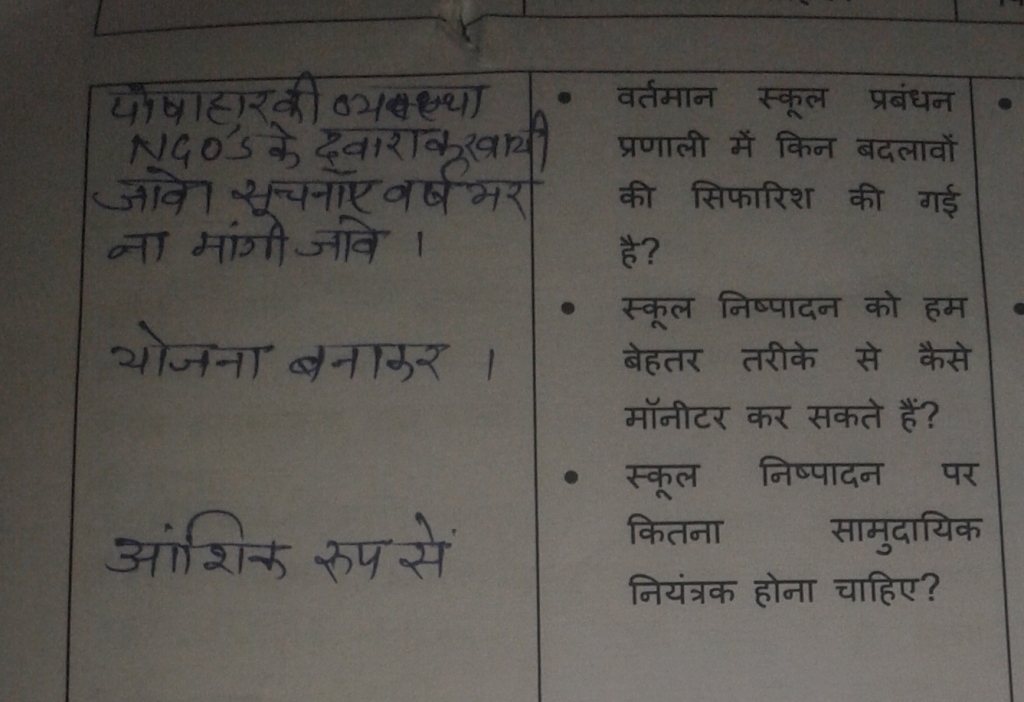 पोषाहार की व्यवस्था
NGO'S के द्वारा करवायी
जावे। सूचनाएँ वर्ष भर
ना मांगी जावे ।
योजना बनाकर ।
आंशिक रूप सें
• वर्तमान स्कूल प्रबंधन
प्रणाली में किन बदलावों
की सिफारिश की गई
है?
• स्कूल निष्पादन को हम
बेहतर तरीके से कैसे
मॉनीटर कर सकते हैं?
• स्कूल निष्पादन पर
कितना सामुदायिक
नियंत्रक होना चाहिए?